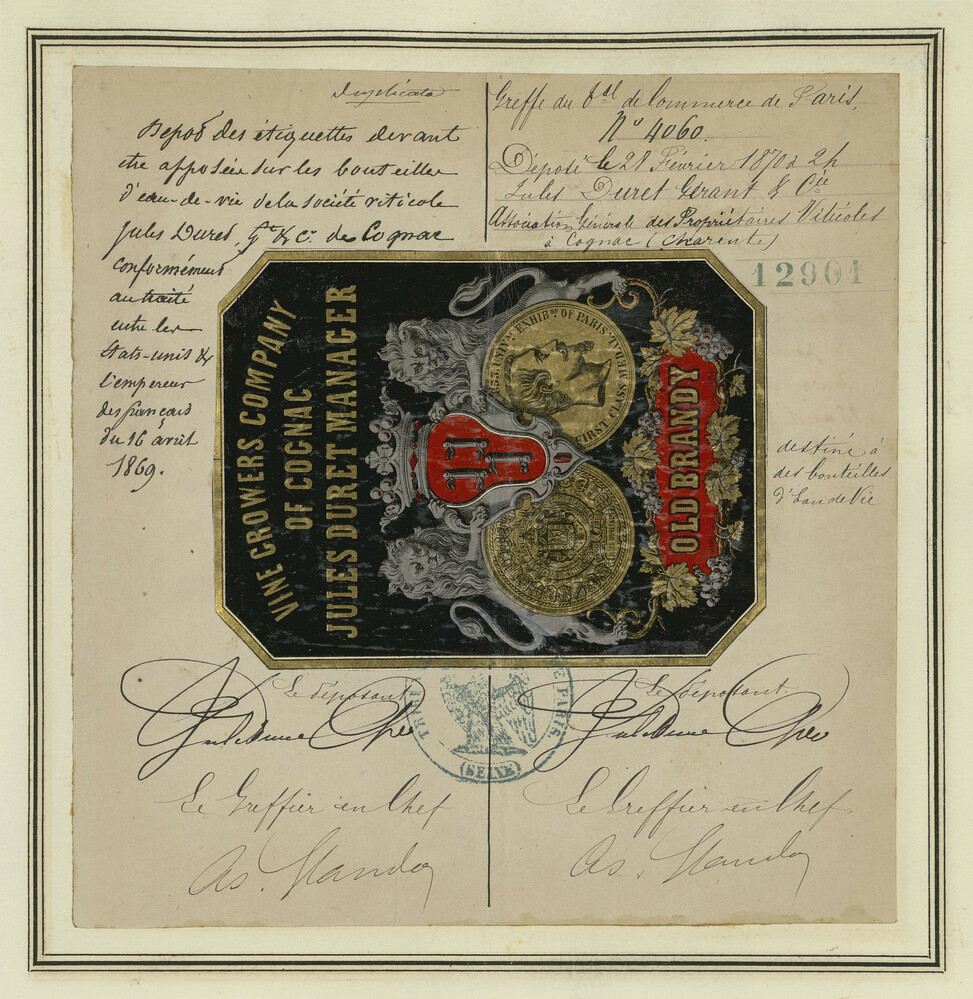 Duplicata
Depot des étiquettes devant
etre apposées sur les bouteilles
d'eau-de-vie de la société viticole
Jules Duret, Gt & Cie de Cognac
conformément
au traité
entre les
Etats-unis &
l'empereur
des français
du 16 avril
1869.
Greffe du Bal de Commerce de Paris,
No 4060.
Déposé le 28 Février 1870 à 2h
Jules Duret Gérant & Cie
Association Générale des Propriétaires Viticoles
à Cognac (Charente)
12901
VINE GROWERS COMPANY
OF COGNAC
JULES DURET MANAGER
1855 UNIVal EXHIBon OF PARIS
FIRST CLASS MEDAL
OLD BRANDY
destiné à
des bouteilles
d'Eau de Vie
Le déposant
Le déposant
DE PARIS
(SEINE)
Le Greffier en Chef
Le Greffier en Chef